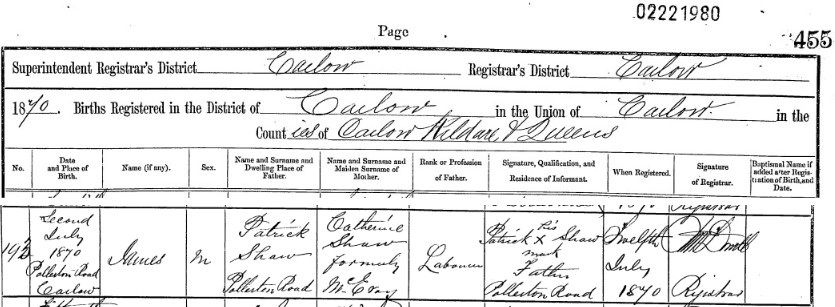 02221980
Page
455
Superintendent Registrar's District Carlow Registrar's District Carlow
1870. Births Registered in the District of Carlow in the Union of Carlow. in the
Counties of Carlow Kildare & Queens
No. Date and Place of Birth. Name (if any). Sex. Name and Surname and Dwelling Place of Father. Name and Surname and Maiden Surname of Mother. Rank or Profession of Father. Signature, Qualification, and Residence of Informant. When Registered. Signature of Registrar. Baptismal Name if added after Registration of Birth, and Date.
Registrar
192
Second
July
1870
Pollerton Road
Carlow
James
M
Patrick
Shaw
Pollerton Road
Catherine
Shaw
formerly
McEvoy
Labourer
his
Patrick X Shaw
mark
Father
Pollerton Road
Twelfth
July
1870
Registrar